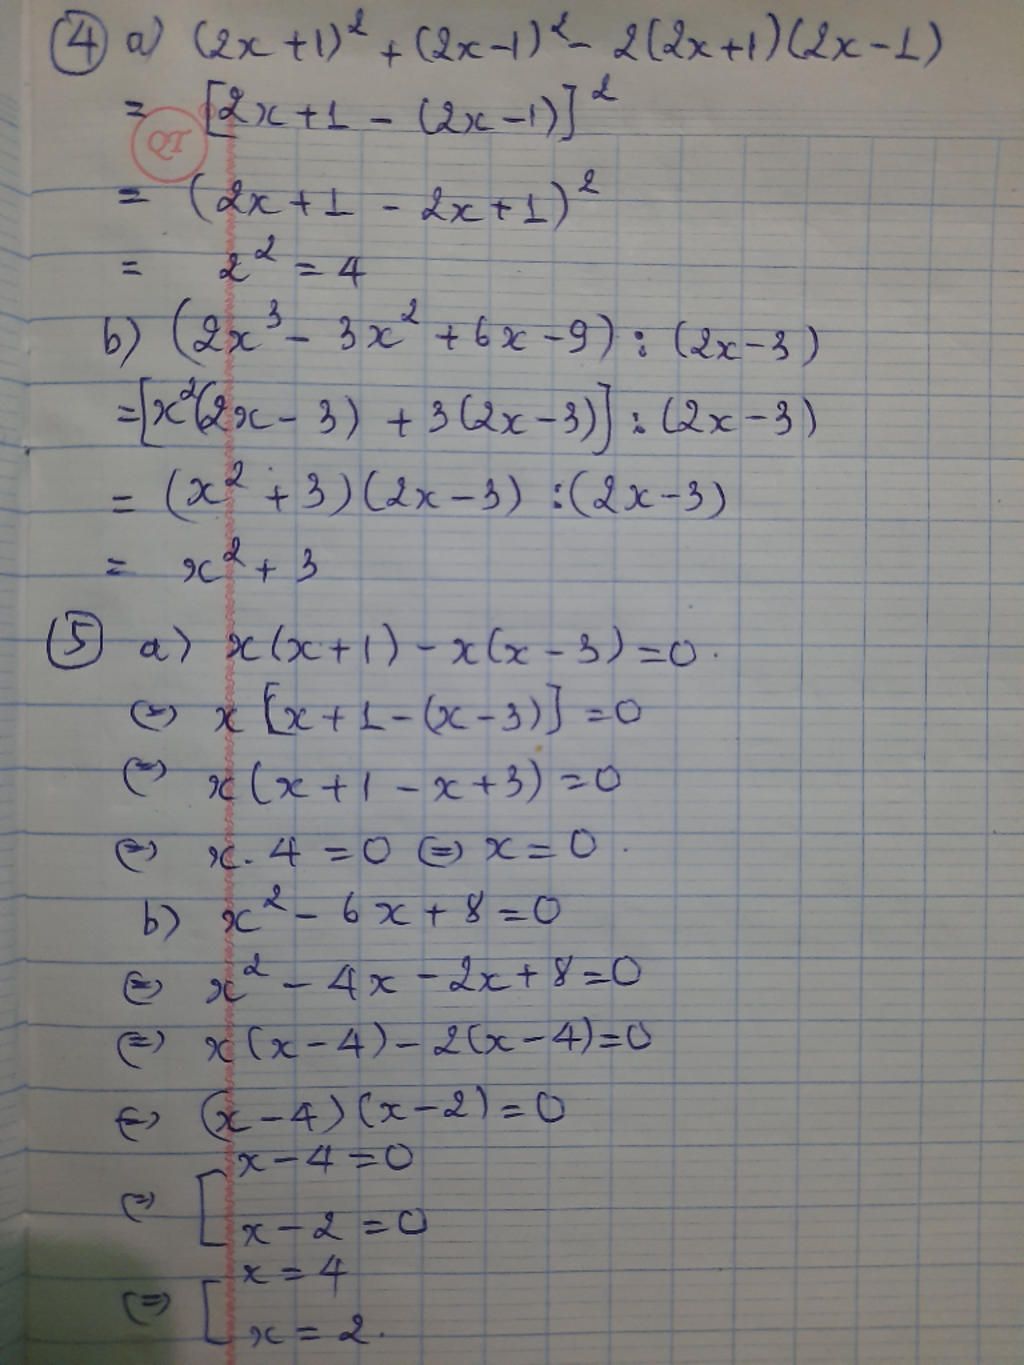 ④ a) (2x+1)² + (2x-1)² - 2(2x+1)(2x-1)
= [2x+1 - (2x-1)]²
QI
= (2x+1 - 2x+1)²
= 2² = 4
b) (2x³ - 3x² + 6x - 9) : (2x-3)
= [x²(2x-3) + 3(2x-3)] : (2x-3)
= (x² + 3)(2x-3) : (2x-3)
= x² + 3
⑤ a) x(x+1) - x(x-3) = 0.
(=) x[x+1-(x-3)] = 0
(=) x(x+1-x+3) = 0
(=) x.4 = 0 (=) x = 0.
b) x² - 6x + 8 = 0
(=) x² - 4x - 2x + 8 = 0
(=) x(x-4) - 2(x-4) = 0
(=) (x-4)(x-2) = 0
x-4 = 0
(=) [
x-2 = 0
x = 4
(=) [
x = 2.